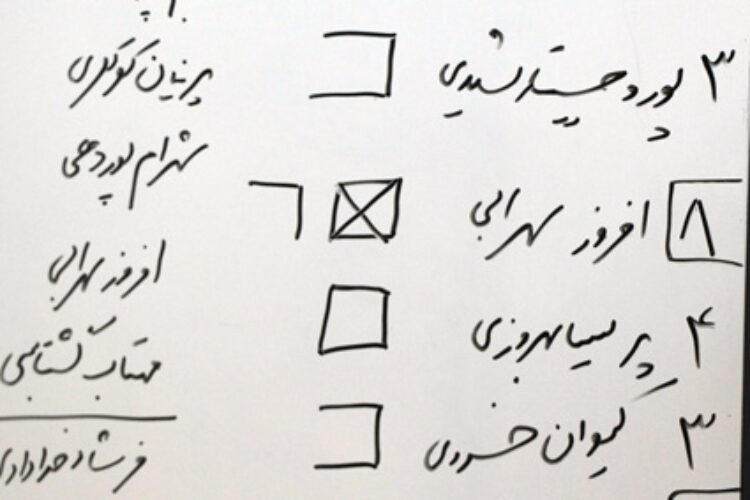 ۳ پوردخت رشیدی
۸ افروز سهرابی
۴ پریسا بهروزی
۳ کیوان خسروی
پرنیان گوگلری
شهرام پوردهی
افروز سهرابی
مهتاب گشتاسبی
فرشاد خدادادی